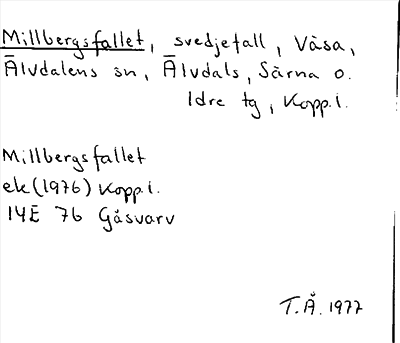 Millbergsfallet, svedjefall, Våsa,
Älvdalens sn, Älvdals, Särna o.
Idre tg, Kopp.l.
Millbergsfallet
ek(1976) Kopp.l.
14E 76 Gåsvarv
T.Å. 1977